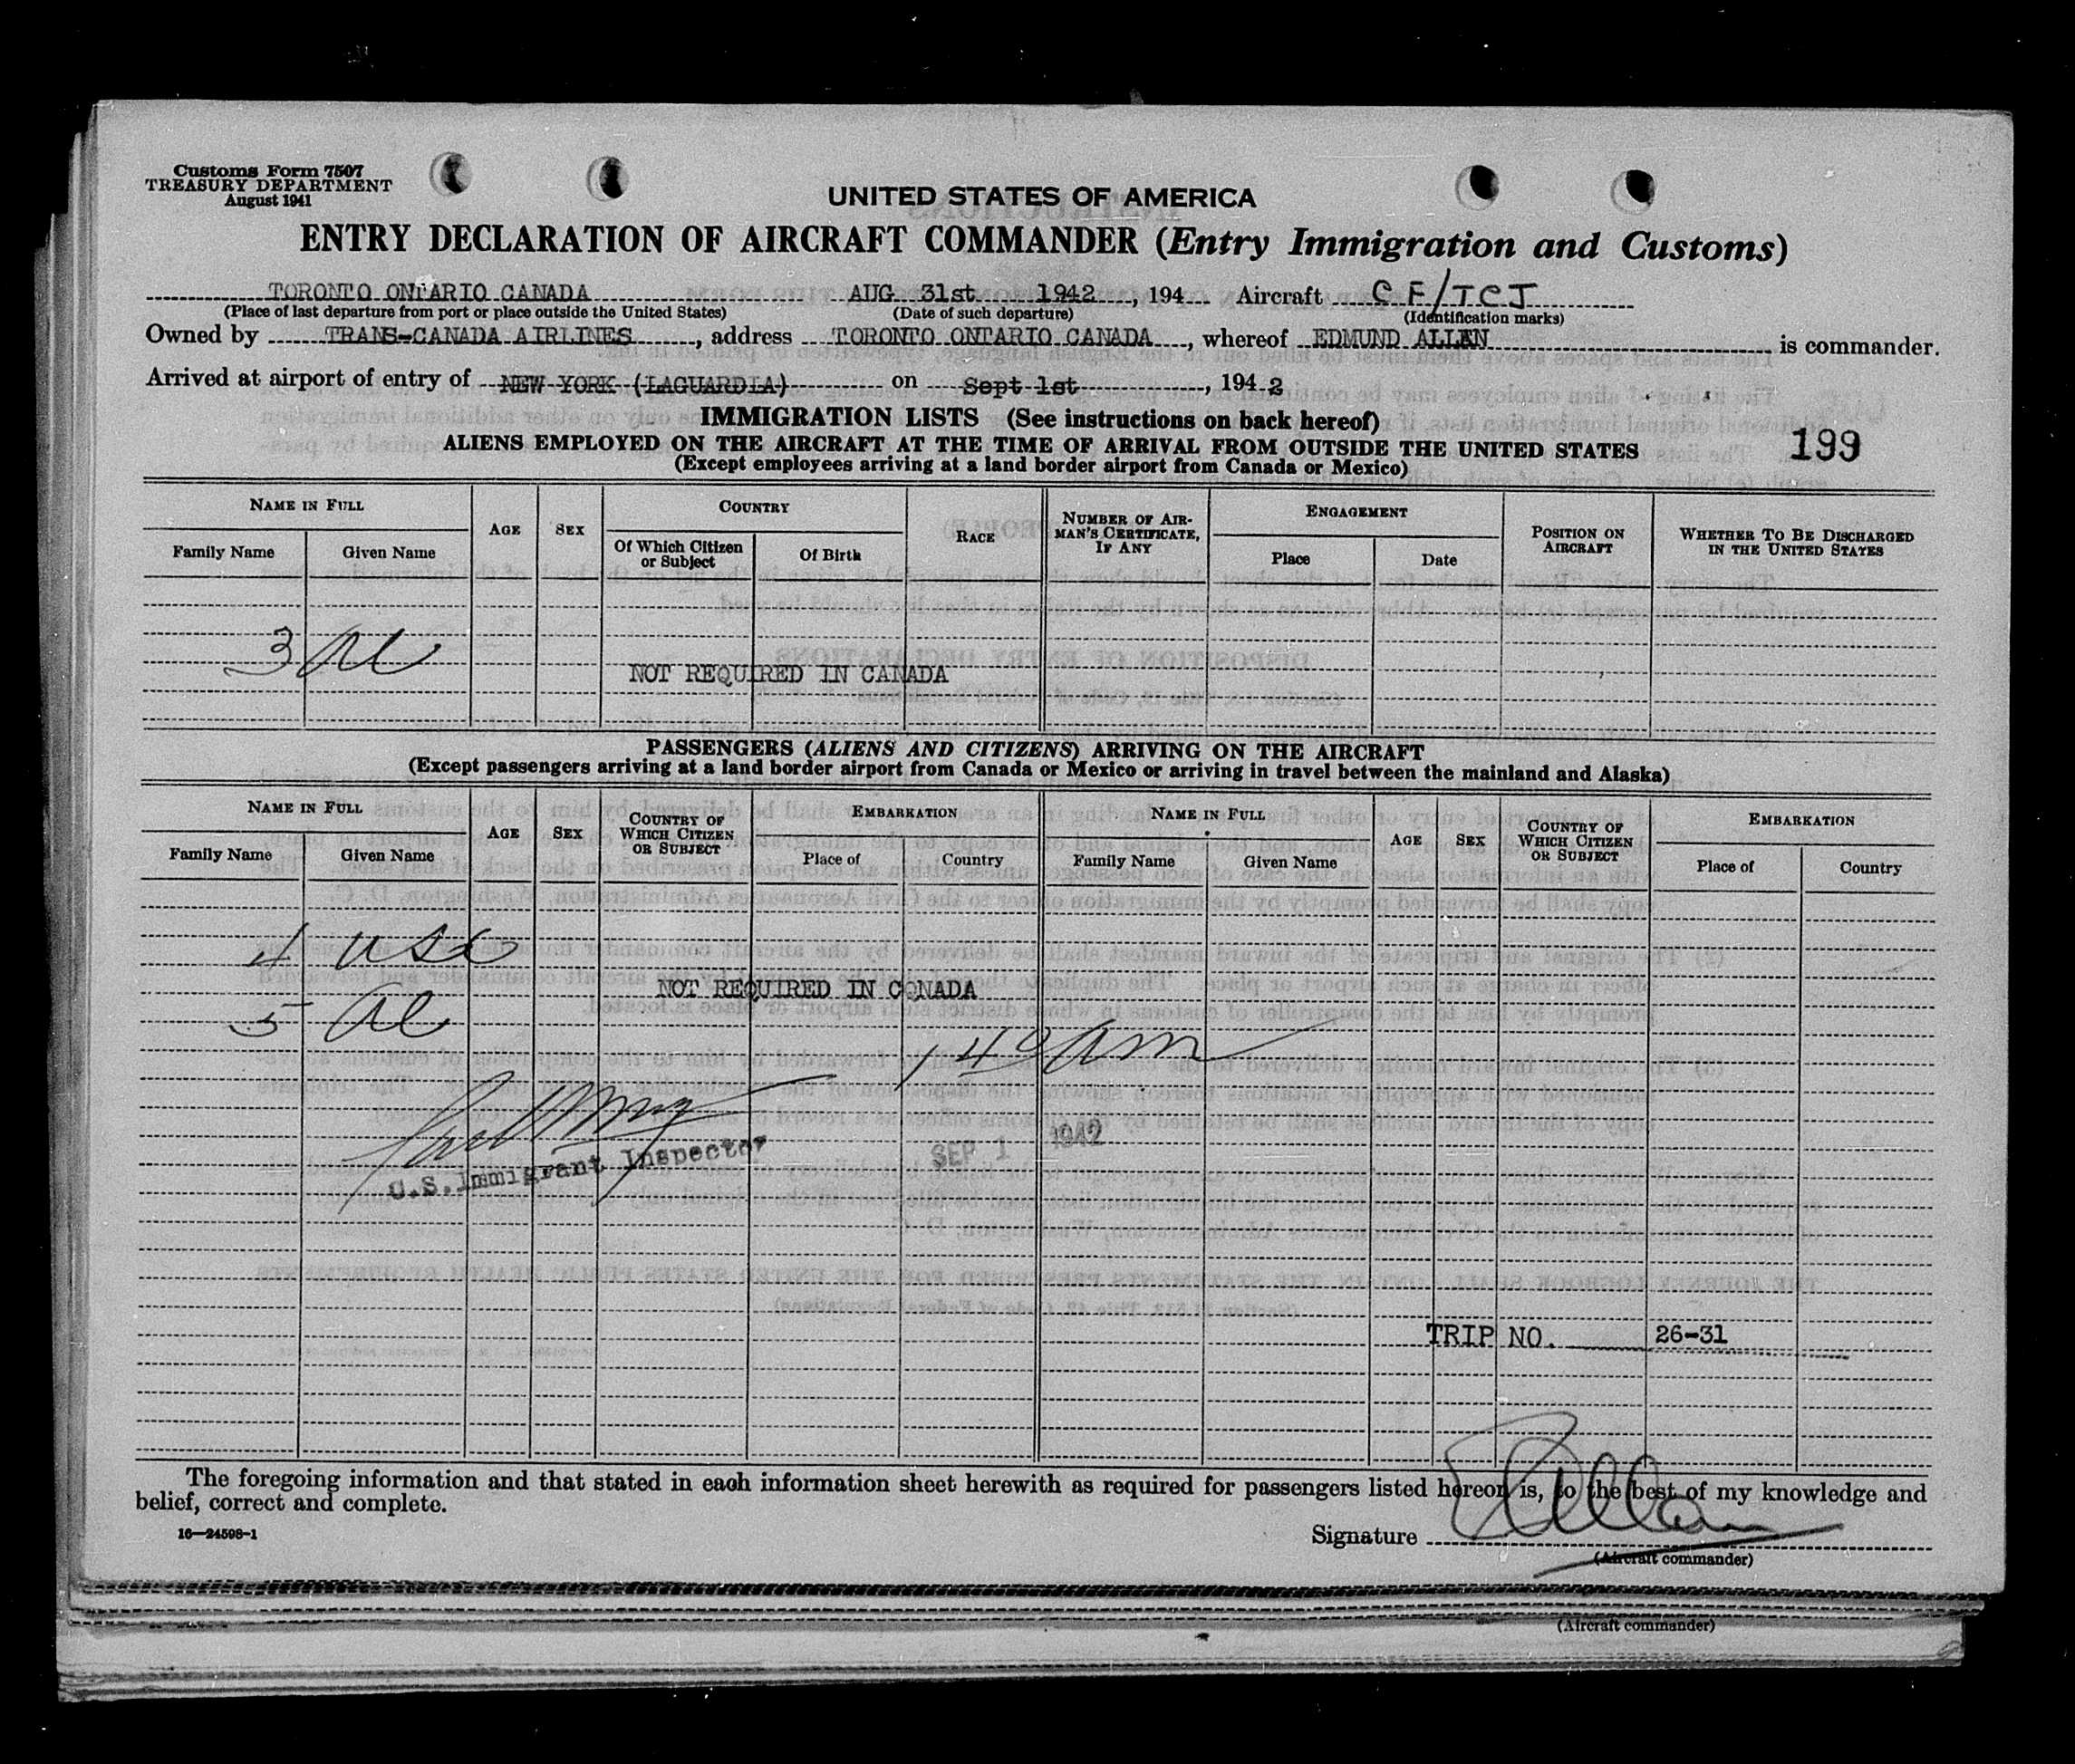 Customs Form 7507
TREASURY DEPARTMENT
August 1941
UNITED STATES OF AMERICA
ENTRY DECLARATION OF AIRCRAFT COMMANDER (Entry Immigration and Customs)
TORONTO ONTARIO CANADA AUG 31st 1942, 194 Aircraft CF/TCJ
(Place of last departure from port or place outside the United States) (Date of such departure) (Identification marks)
Owned by TRANS-CANADA AIRLINES, address TORONTO ONTARIO CANADA, whereof EDMUND ALLAN is commander.
Arrived at airport of entry of NEW YORK (LAGUARDIA) on Sept 1st, 1942
IMMIGRATION LISTS (See instructions on back hereof)
ALIENS EMPLOYED ON THE AIRCRAFT AT THE TIME OF ARRIVAL FROM OUTSIDE THE UNITED STATES 199
(Except employees arriving at a land border airport from Canada or Mexico)
NAME IN FULL AGE SEX COUNTRY RACE NUMBER OF AIRMAN'S CERTIFICATE, IF ANY ENGAGEMENT POSITION ON AIRCRAFT WHETHER TO BE DISCHARGED IN THE UNITED STATES
Family Name Given Name Of Which Citizen or Subject Of Birth Place Date
3 al
NOT REQUIRED IN CANADA
PASSENGERS (ALIENS AND CITIZENS) ARRIVING ON THE AIRCRAFT
(Except passengers arriving at a land border airport from Canada or Mexico or arriving in travel between the mainland and Alaska)
NAME IN FULL AGE SEX COUNTRY OF WHICH CITIZEN OR SUBJECT EMBARKATION NAME IN FULL AGE SEX COUNTRY OF WHICH CITIZEN OR SUBJECT EMBARKATION
Family Name Given Name Place of Country Family Name Given Name Place of Country
4 usc
NOT REQUIRED IN CONADA
5 al
1 40 am
U.S. Immigrant Inspector SEP 1 1942
TRIP NO. 26-31
The foregoing information and that stated in each information sheet herewith as required for passengers listed hereon is, to the best of my knowledge and
belief, correct and complete.
16—24598-1
Signature E Allan
(Aircraft commander)
(Aircraft commander)